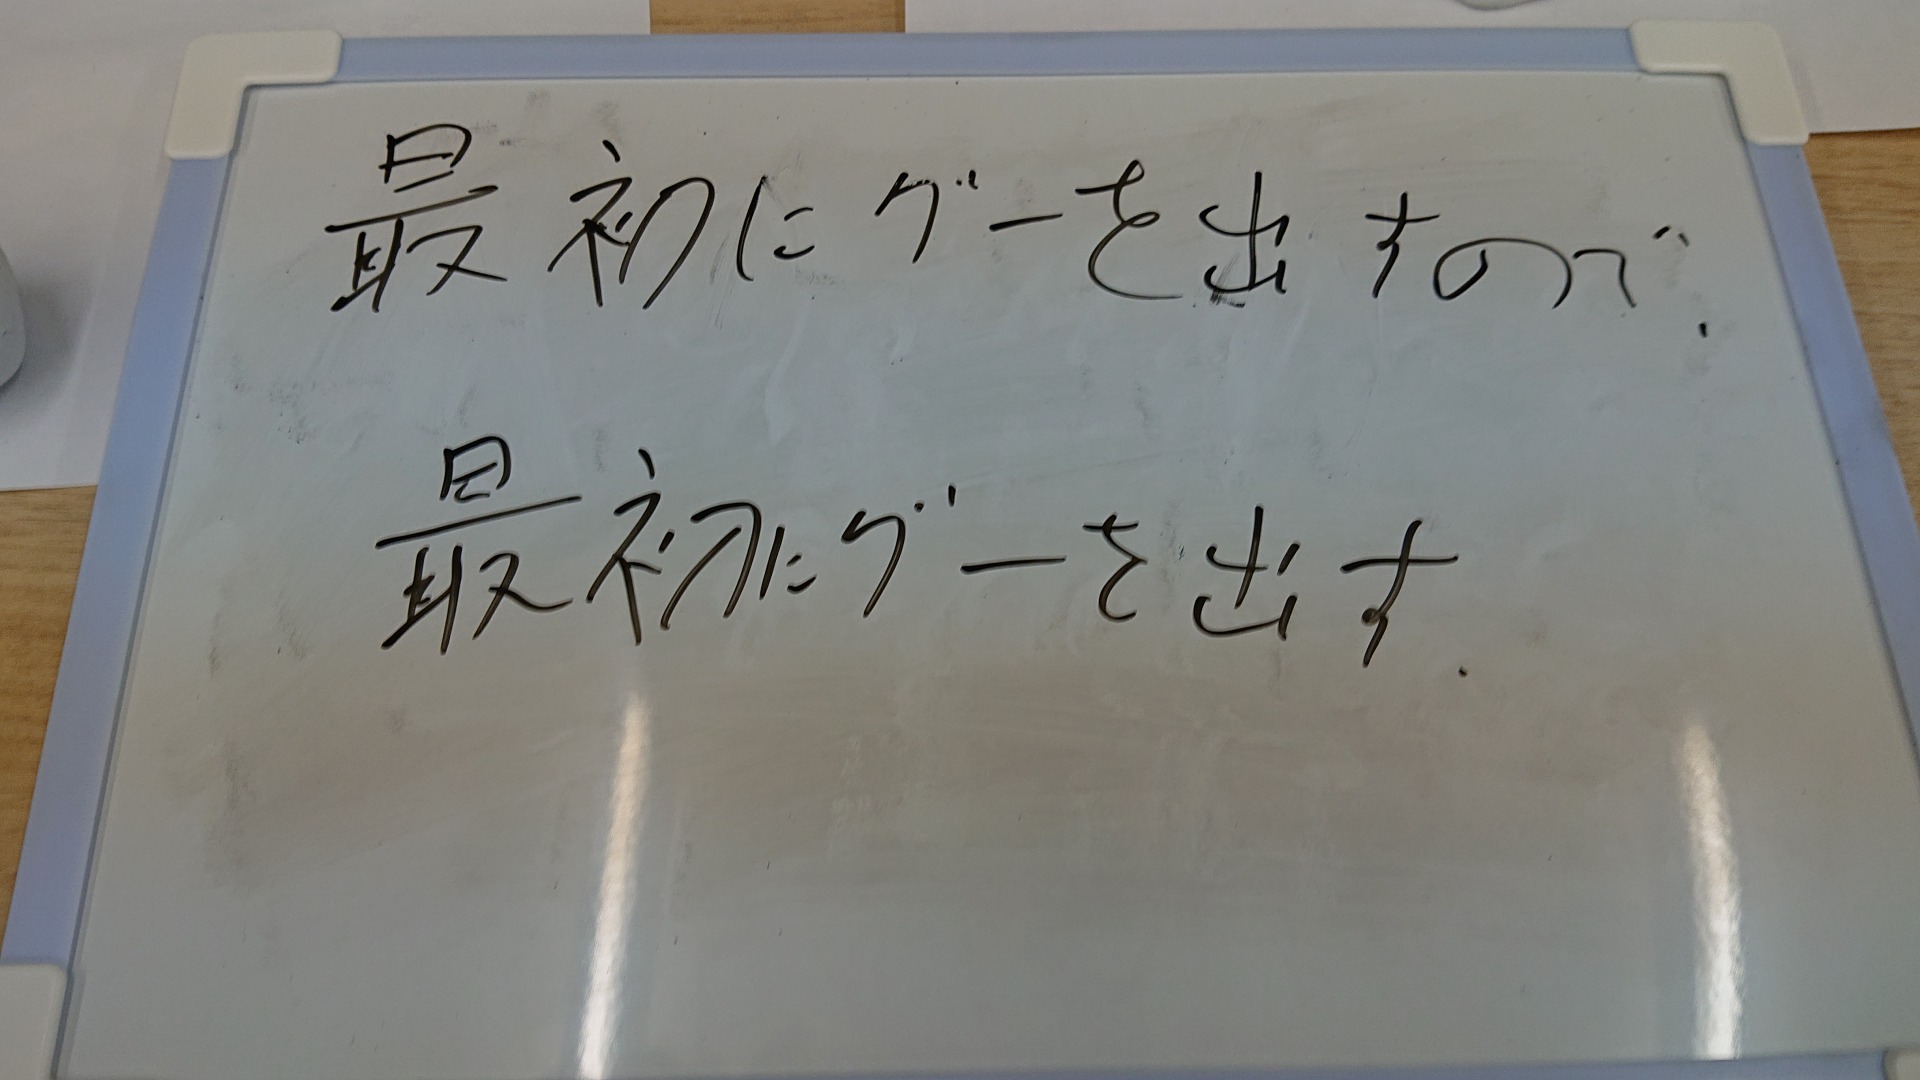 最初にグーを出すので、
最初にグーを出す。